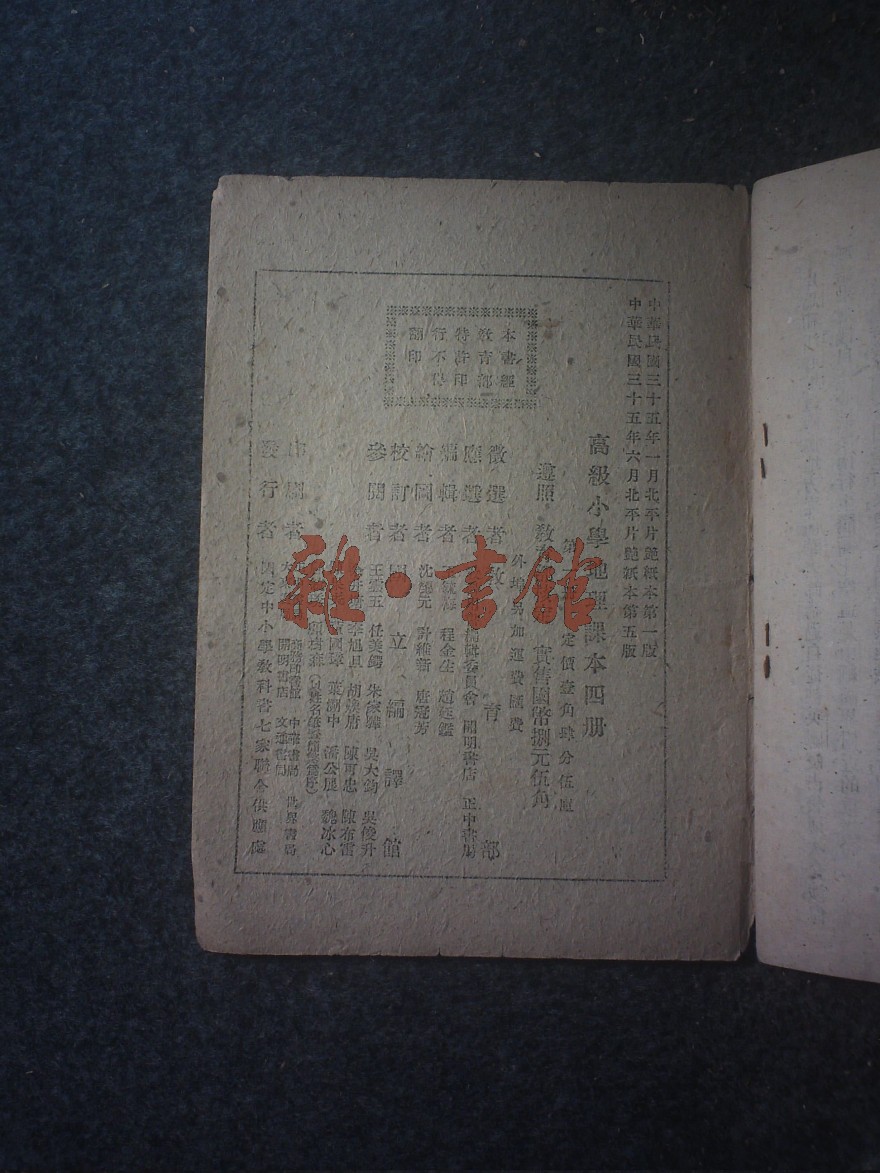 中華民國三十五年一月北平片艷紙本第一版
中華民國三十五年六月北平片艷紙本第五版
高級小學地理課本四册
遵照 教
第 定價壹角肆分伍厘
實售國幣捌元伍角
外埠另加運費匯費
本書經
教育部
特許印
行不得
翻印
徵選者 教 育 部
應選者 編輯委員會 開明書店 正中書局
編輯者 程金生 趙廷鑑
繪圖者 沈德元 許維新 唐冠芳
校訂者 國立編譯館
參閱者 王雲五 任美鍔 朱家驊 吳大鈞 吳俊升
李旭旦 胡煥庸 陳可忠 陳布雷
葉溯中 潘公展 魏冰心
印刷者 商務印書館 中華書局 世界書局
開明書店 文通書局
發行者 國定中小學教科書七家聯合供應處
雜·書館